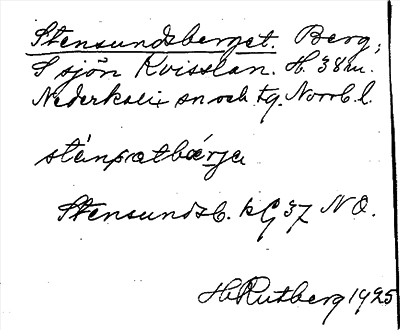 Stensundsberget. Berg,
S sjön Kvisslan. H. 38 m.
Nederkalix sn och tg. Norrb. l.
sténsatbǽrje
Stensundsb. kG 37 NO.
H Rutberg 1925